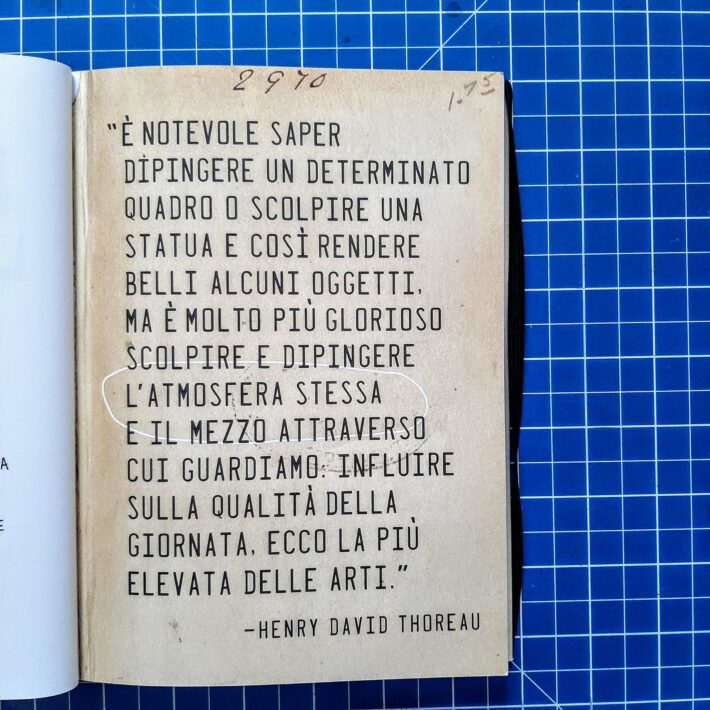 2970
1.75
“È NOTEVOLE SAPER
DIPINGERE UN DETERMINATO
QUADRO O SCOLPIRE UNA
STATUA E COSÌ RENDERE
BELLI ALCUNI OGGETTI,
MA È MOLTO PIÙ GLORIOSO
SCOLPIRE E DIPINGERE
L’ATMOSFERA STESSA
E IL MEZZO ATTRAVERSO
CUI GUARDIAMO. INFLUIRE
SULLA QUALITÀ DELLA
GIORNATA, ECCO LA PIÙ
ELEVATA DELLE ARTI.”
–HENRY DAVID THOREAU
A
E